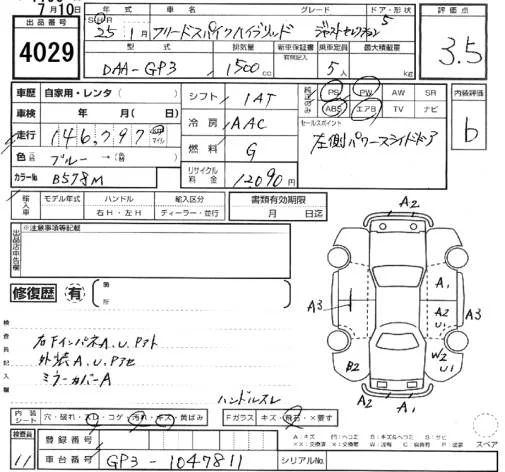 7月10日
出品番号 4029
年式 車名 グレード ドア・形状 評価点
25年1月 フリードスパイクハイブリッド ジャストセレクション 5 3.5
型式 排気量 新車保証書 有無記入 乗車定員 最大積載量
DAA-GP3 1500cc 5人 kg
車歴 自家用・レンタ( ) シフト 1AT 純正のみ PS PW AW SR 内装評価
車検 年 月( 日) 冷房 AAC ABS エアB TV ナビ b
走行 146,797 km マイル セールスポイント
左側パワースライドドア
色 ブルー→(替 ) 燃料 G
カラーNo B578M リサイクル料金 12090円
輸入車 モデル年式 ハンドル 輸入区分 書類有効期限
右H・左H ディーラー・並行 月 日迄
出品店申告欄 ※注意事項等記載
修復歴 有 箇所
検査員記入欄
右Fインパネ A、U、Pアト
外装 A、U、Pアセ
ミラーカバー A
ハンドルスレ
内装シート 穴・破れ・スレ・コゲ・汚れ・キズ・黄ばみ Fガラス キズ・飛石・×要す
検査員 11
登録番号
車台番号 GP3-1047811 シリアルNo.
A2
A1
A3
A2
U1
A3
B2
W2
U1
A2
スペア